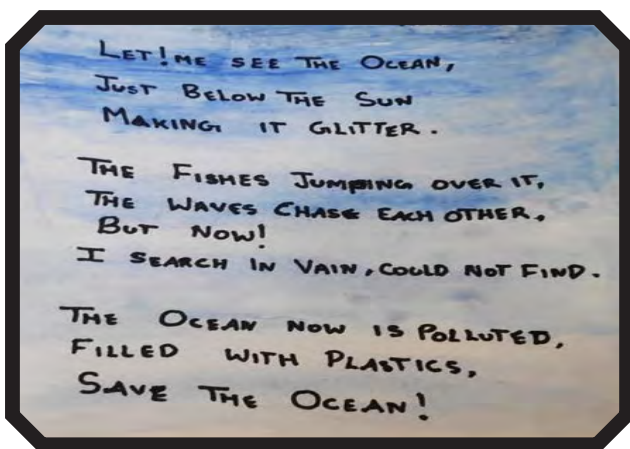 LET! ME SEE THE OCEAN,
JUST BELOW THE SUN
MAKING IT GLITTER.
THE FISHES JUMPING OVER IT,
THE WAVES CHASE EACH OTHER.
BUT NOW!
I SEARCH IN VAIN, COULD NOT FIND.
THE OCEAN NOW IS POLLUTED,
FILLED WITH PLASTICS,
SAVE THE OCEAN!